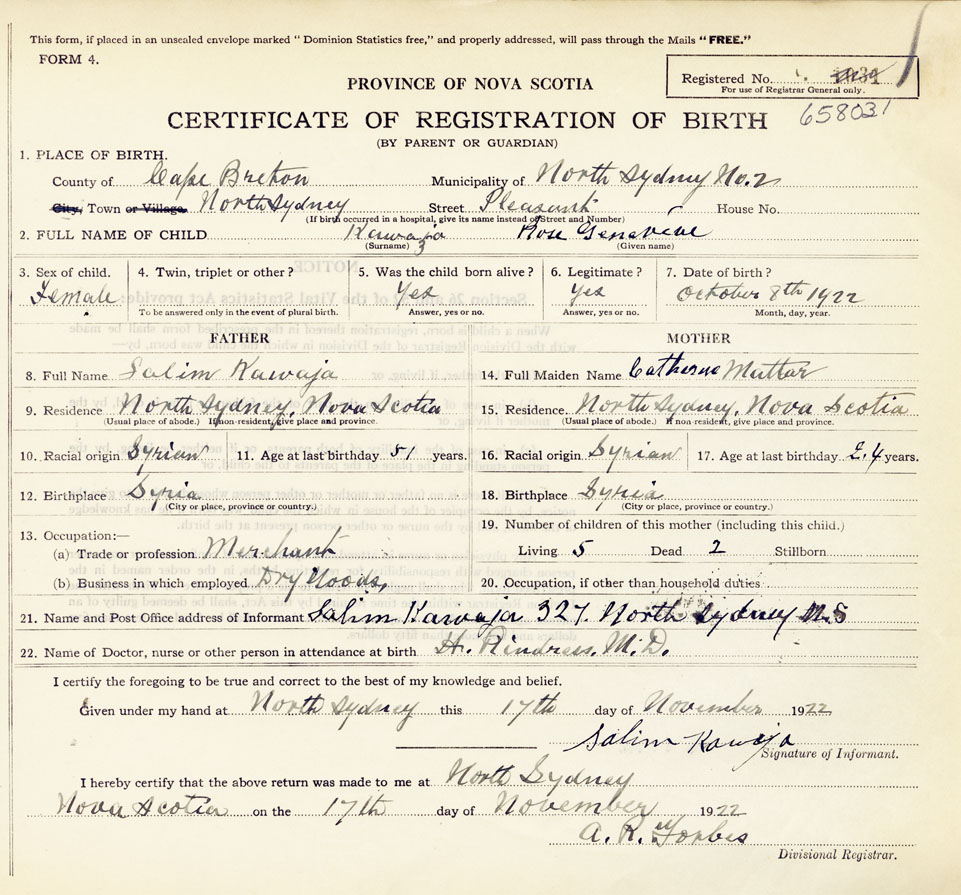 This form, if placed in an unsealed envelope marked "Dominion Statistics free," and properly addressed, will pass through the Mails "FREE."
FORM 4.
PROVINCE OF NOVA SCOTIA
Registered No.
For use of Registrar General only.
658031
CERTIFICATE OF REGISTRATION OF BIRTH
(BY PARENT OR GUARDIAN)
1. PLACE OF BIRTH.
County of Cape Breton Municipality of North Sydney No. 2
City, Town or Village North Sydney Street Pleasant House No.
(If birth occurred in a hospital, give its name instead of Street and Number)
2. FULL NAME OF CHILD Kawaja Rose Genevieve
(Surname) 3 (Given name)
3. Sex of child. 4. Twin, triplet or other? 5. Was the child born alive? 6. Legitimate? 7. Date of birth?
Female Yes Yes October 8th 1922
To be answered only in the event of plural birth. Answer, yes or no. Answer, yes or no. Month, day, year.
FATHER MOTHER
8. Full Name Salim Kawaja 14. Full Maiden Name Catherine Mattar
9. Residence North Sydney, Nova Scotia 15. Residence. North Sydney, Nova Scotia
(Usual place of abode.) If non-resident, give place and province. (Usual place of abode.) If non-resident, give place and province.
10. Racial origin Syrian 11. Age at last birthday 51 years. 16. Racial origin Syrian 17. Age at last birthday 24 years.
12. Birthplace Syria 18. Birthplace Syria
(City or place, province or country.) (City or place, province or country.)
13. Occupation:— 19. Number of children of this mother (including this child.)
(a) Trade or profession Merchant Living 5 Dead 2 Stillborn
(b) Business in which employed Dry Goods, 20. Occupation, if other than household duties
21. Name and Post Office address of Informant Salim Kawaja 327 North Sydney N.S
22. Name of Doctor, nurse or other person in attendance at birth H. Rindress. M.D.
I certify the foregoing to be true and correct to the best of my knowledge and belief.
Given under my hand at North Sydney this 17th day of November 1922
Salim Kawaja
Signature of Informant.
I hereby certify that the above return was made to me at North Sydney
Nova Scotia on the 17th day of November 1922
A. R. Forbes
Divisional Registrar.